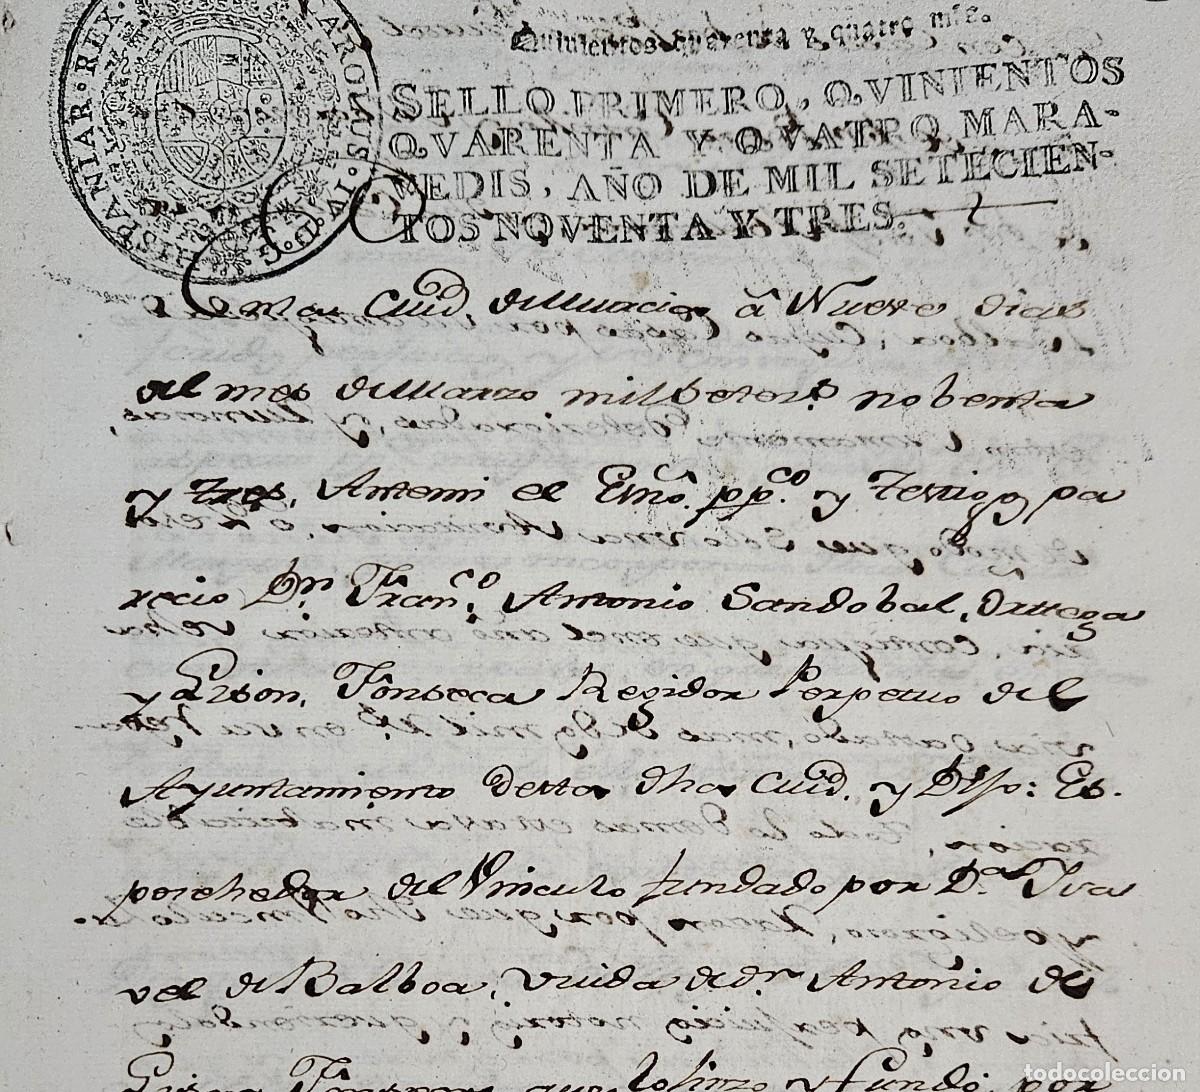 CAROLUS·IV·D·G·HISPANIAR·REX·
Quinientos quarenta y quatro mrs.
SELLO PRIMERO, QVINIENTOS
QVARENTA Y QVATRO MARA-
VEDIS, AÑO DE MIL SETECIEN-
TOS NOVENTA Y TRES.
En la Ciud. de Murcia â Nueve dias
del mes de Marzo mil setezs. nobenta
y tres, Antemi el Esno. ppco. y Testigos pa
recio Dn. Franco. Antonio Sandobal, Orttega
y Grison, Fonseca Regidor Perpetuo del
Ayuntamiento desta dha Ciud. y Dijo: Es.
porehedor del Vinculo fundado por Da. Ysa
vel de Balboa, viuda de dn. Antonio de
Grison Fonseca, que lo hizo y fundó por
todocoleccion